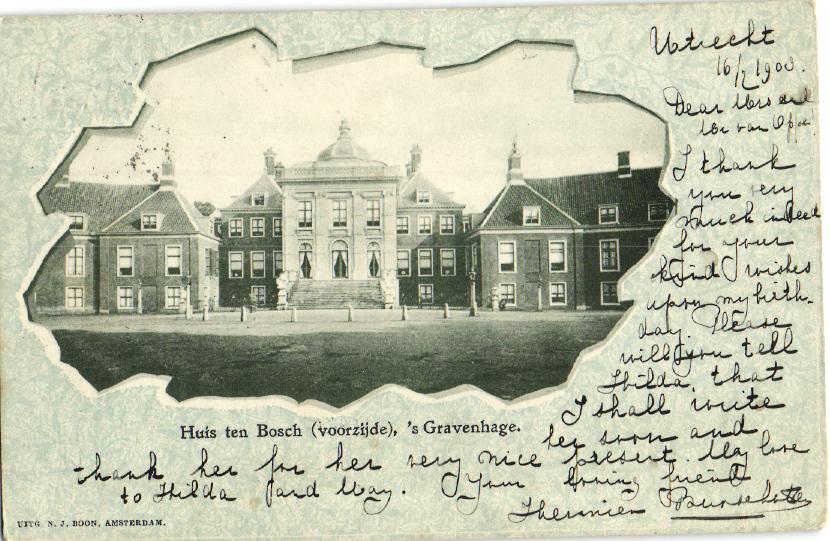 Utrecht
16/2 1903.
Dear Mrs and
Mr van
I thank
you very
much indeed
for your
kind wishes
upon my birth-
day. Please
will you tell
Hilda, that
I shall write
her soon and
thank her for her very nice present. My love
to Hilda and May. Your loving friend
Huis ten Bosch (voorzijde), 's Gravenhage.
UITG. N. J. BOON, AMSTERDAM.